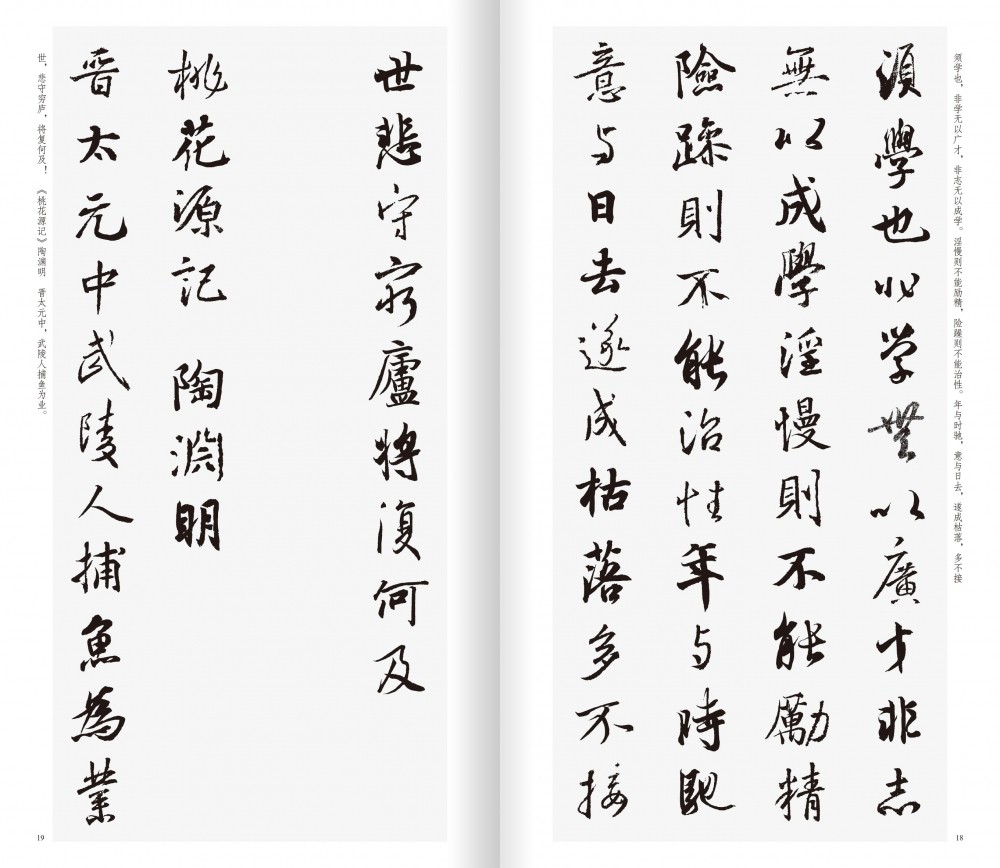 须学也，非学无以广才，非志无以成学。淫慢则不能励精，险躁则不能治性。年与时驰，意与日去，遂成枯落，多不接
須學也非学無以廣才非志
無以成學淫慢則不能勵精
險躁則不能治性年与時馳
意与日去遂成枯落多不接
18
世悲守窮廬將復何及
桃花源記 陶淵明
晋太元中武陵人捕魚為業
世，悲守穷庐，将复何及！ 《桃花源记》陶渊明 晋太元中，武陵人捕鱼为业。
19